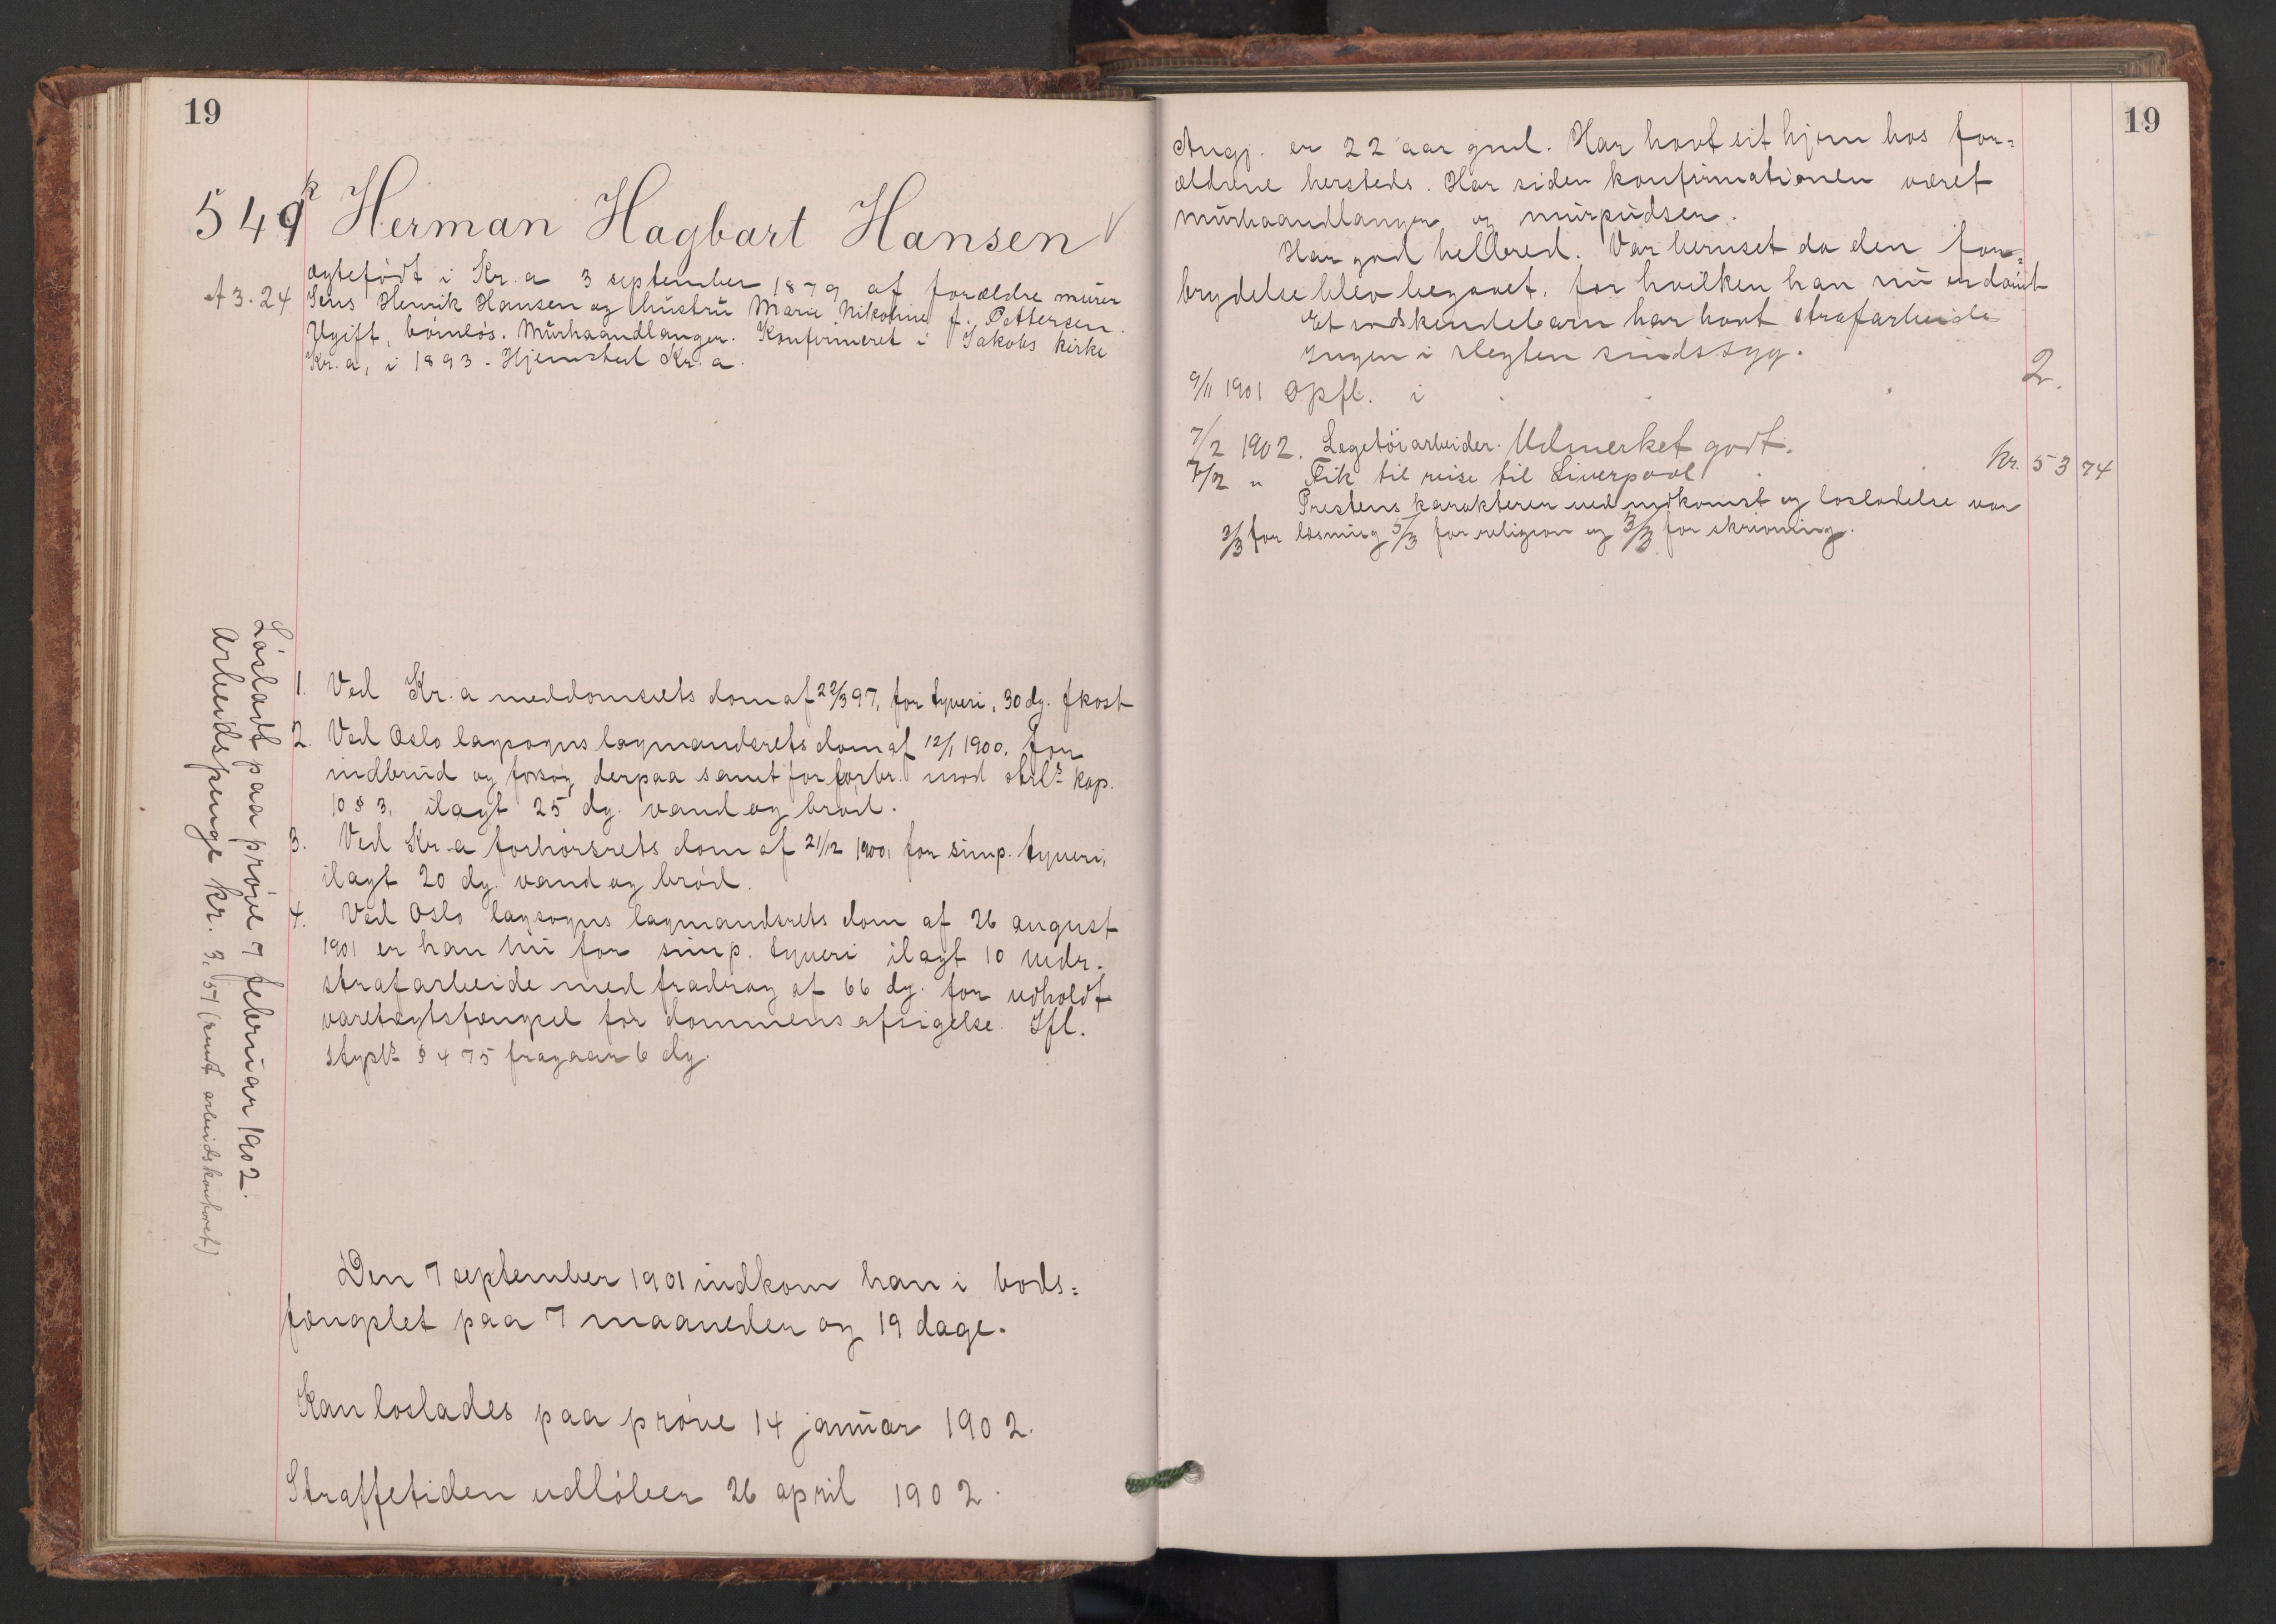 19
549 k Herman Hagbart Hansen V
A 3. 24
ægtefødt i Kr.a 3 september 1879 af forældre murer
Jens Henrik Hansen og hustru Marie Nikoline f. Pettersen.
Ugift, børnløs. Murhaandlanger. Konfirmeret i Jakobs kirke
Kr.a, i 1893. Hjemsted Kr.a.
1. Ved Kr.a meddomsrets dom af 22/3 97, for tyveri, 30 dg. fkost
2. Ved Oslo lagsogns lagmandsrets dom af 12/1 1900, for
indbrud og forsøg derpaa samt for forbr. mod strls kap.
10 § 3, ilagt 25 dg. vand og brød.
3. Ved Kr.a forhørsrets dom af 21/12 1900, for simp. tyveri,
ilagt 20 dg. vand og brød.
4. Ved Oslo lagsogns lagmandsrets dom af 26 august
1901 er han nu for simp. tyveri ilagt 10 mdr.
strafarbeide med fradrag af 66 dg. for udholdt
varetægtsfængsel før dommens afsigelse. Ifl.
stypl § 475 fragaar 6 dg.
Løsladt paa prøve 7 februar 1902.
Arbeidspenge kr. 3,51 (sendt arbeidskontoret)
Den 7 september 1901 indkom han i bods=
fængslet paa 7 maaneder og 19 dage.
Kan løslades paa prøve 14 januar 1902.
Straffetiden udløber 26 april 1902.
19
Angj. er 22 aar gml. Har havt sit hjem hos for=
ældrene hersteds. Har siden konfirmationen været
murhaandlanger og murpudser.
Har god helbred. Var beruset da den for=
brydelse blev begaaet, for hvilken han nu er dømt
Et sødskendebarn har havt strafarbeide
Ingen i slegten sindssyg.
9/11 1901 Opfl. i 2.
7/2 1902. Legetøiarbeider. Udmerket godt.
7/2 " Fik til reise til Liverpool kr. 53 74
Prestens karakterer ved indkomst og løsladelse var
3/3 for læsning 5/3 for religion og 3/3 for skrivning.